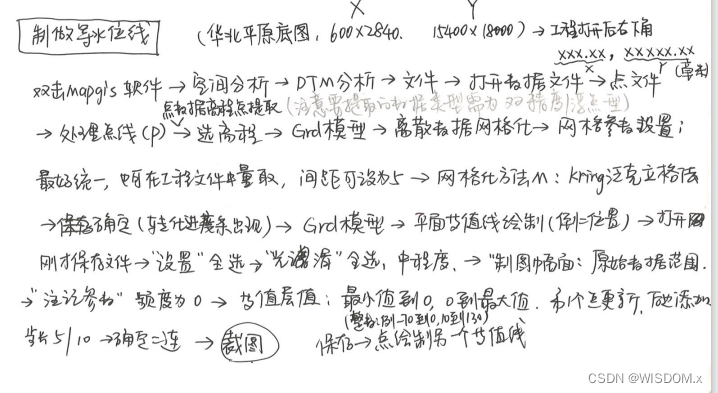 制做等水位线 (华北平原底图, 600×2840. 15400×18000) → 工程打开后右下角
X Y
xxx.xx, xxxxx.xx
X Y
双击mapgis 软件 → 空间分析 → DTM分析 → 文件 → 打开数据文件 → 点文件
点数据高程点提取 (注意要提取的数据类型需为双精度浮点型)
→ 处理点线(P) → 选高程 → Grd模型 → 离散数据网格化 → 网格参数设置;
最好统一, 可在工程文件中量取, 间距可设为5 → 网格化方法n: Kring泛克立格法
→ 保存确定 (转化进度条出现) → Grd模型 → 平面等值线绘制 (倒=位置) → 打开
刚才保存文件 → "设置" 全选 → "光滑" 全选, 中程度, → "制图幅面: 原始数据范围.
→ "注记参数" 频度为0 → 等值层值: 最小值到0, 0到最大值.
(整数: 例-70到0, 10到130)
步长5/10 → 确定 → 截图 保存 → 点绘制另一个等值线
CSDN @WISDOM.x